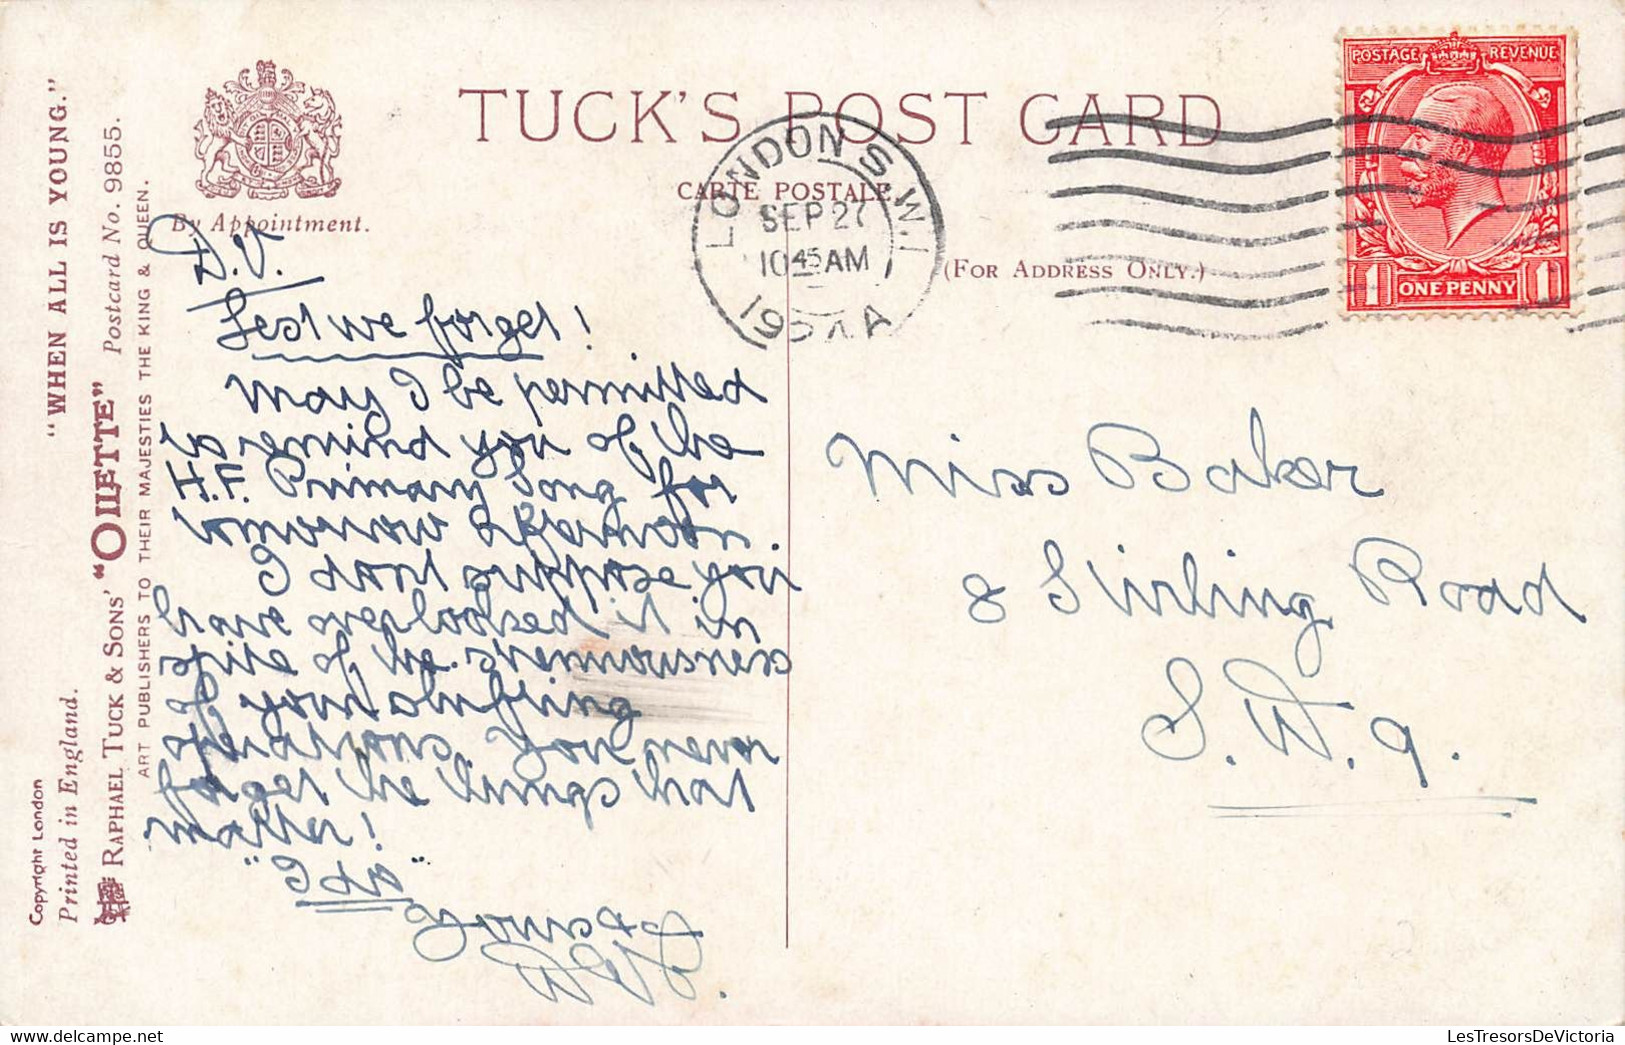 TUCK'S POST CARD
CARTE POSTALE.
(FOR ADDRESS ONLY.)
By Appointment.
"WHEN ALL IS YOUNG."
Postcard No. 9855.
RAPHAEL TUCK & SONS' "OILETTE"
ART PUBLISHERS TO THEIR MAJESTIES THE KING & QUEEN.
Copyright London
Printed in England.
LONDON S.W.1
SEP 27
10 45 AM
POSTAGE REVENUE
1 ONE PENNY 1
D.V.
Lest we forget!
May I be permitted
to remind you of the
H.F. Primary Song for
tomorrow afternoon.
I dont suppose you
have overlooked it in
spite of the strenuousness
of your shifting
operations. You never
forget the things that
matter!
"I do"
Yours
Miss Baker
8 Stirling Road
S.W.9.
LesTresorsDeVictoria